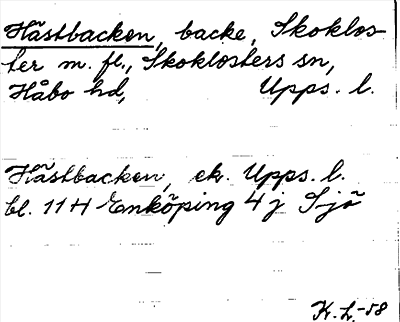 Hästbacken, backe, Skoklos-
ter m. fl., Skoklosters sn,
Håbo hd, Upps. l.
Hästbacken, ek. Upps. l.
bl. 11 H Enköping 4 j Sjö
K. L-58